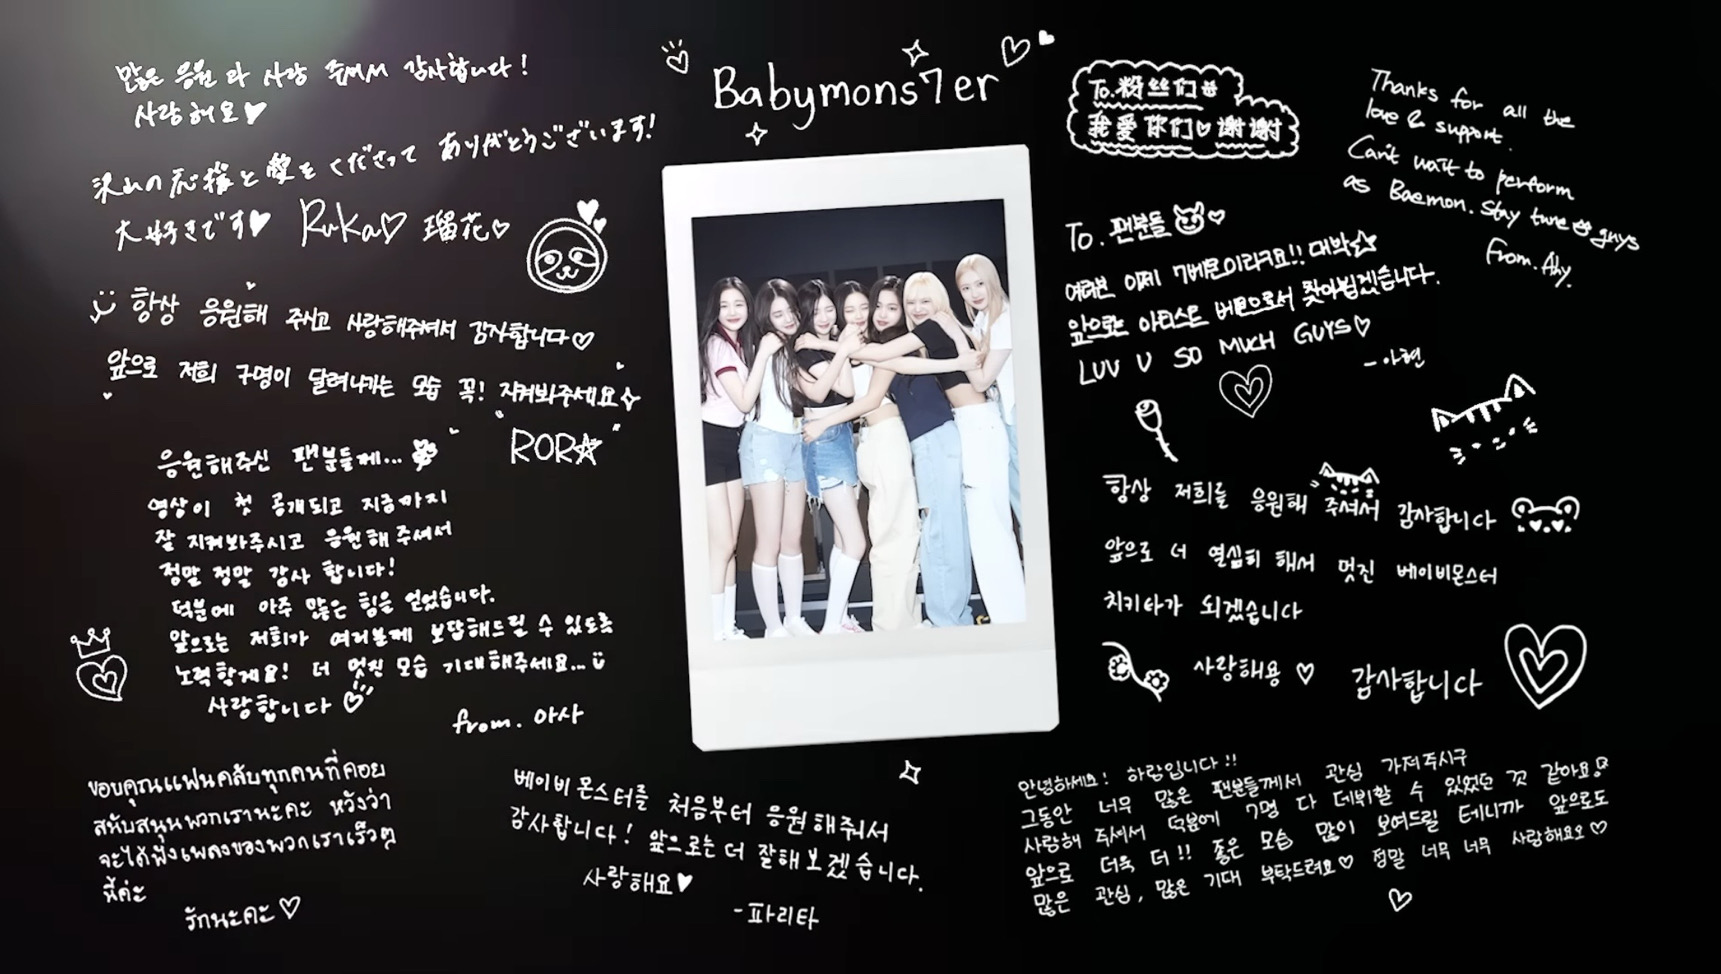 많은 응원과 사랑 주셔서 감사합니다!
사랑해요♥
沢山の応援と愛をくださって ありがとうございます!
大好きです♥ RuKa♡ 瑠花♡
항상 응원해 주시고 사랑해주셔서 감사합니다♡
앞으로 저희 7명이 달려나가는 모습 꼭! 지켜봐주세요
"RORA"
응원해주신 팬분들께...
영상이 첫 공개되고 지금까지
잘 지켜봐주시고 응원해주셔서
정말 정말 감사 합니다!
덕분에 아주 많은 힘을 얻었습니다.
앞으로는 저희가 여러분께 보답해드릴 수 있도록
노력할게요! 더 멋진 모습 기대해주세요...
사랑합니다♡
from. 아사
ขอบคุณแฟนคลับทุกคนที่คอย
สนับสนุนพวกเรานะคะ หวังว่า
จะได้ฟังเพลงของพวกเราเร็วๆ
นี้ค่ะ
รักนะคะ♡
Babymons7er
베이비몬스터를 처음부터 응원해주셔서
감사합니다! 앞으로는 더 잘해보겠습니다.
사랑해요♥
-파리타
To.粉丝们
我爱你们♡谢谢
Thanks for all the
love & support.
Can't wait to perform
as Baemon. Stay tune guys
From. Ahy.
To. 팬분들♡
여러분 이제 7베몬이라구요!! 대박☆
앞으로는 아티스트 베몬으로서 찾아뵙겠습니다.
LUV U SO MUCH GUYS♡
-아현
항상 저희를 응원해 주셔서 감사합니다
앞으로 더 열심히 해서 멋진 베이비몬스터
치키타가 되겠습니다
사랑해용♡ 감사합니다
안녕하세요! 하람입니다!!
그동안 너무 많은 팬분들께서 관심 가져주시구
사랑해 주셔서 덕분에 7명 다 데뷔할 수 있었던 것 같아요
앞으로 더욱 더!! 좋은 모습 많이 보여드릴 테니까 앞으로도
많은 관심, 많은 기대 부탁드려요♡ 정말 너무 너무 사랑해요오♡